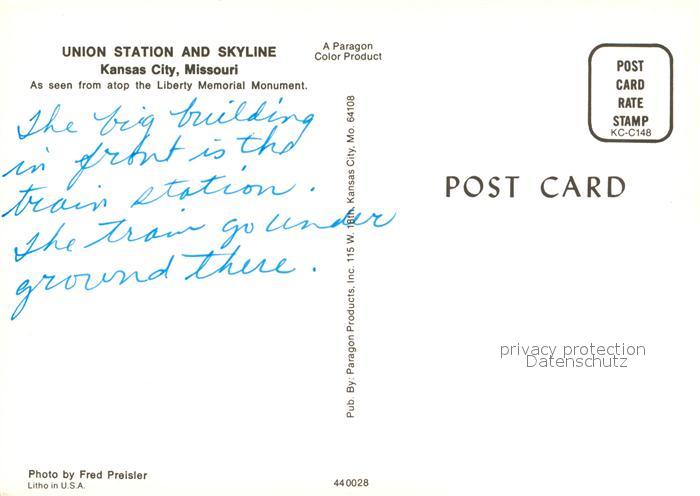 UNION STATION AND SKYLINE
Kansas City, Missouri
As seen from atop the Liberty Memorial Monument.
The big building
in front is the
train station.
The train go under
ground there.
Photo by Fred Preisler
Litho in U.S.A.
A Paragon
Color Product
Pub. By: Paragon Products, Inc. 115 W. 18th, Kansas City, Mo. 64108
440028
POST
CARD
RATE
STAMP
KC-C148
POST CARD
privacy protection
Datenschutz